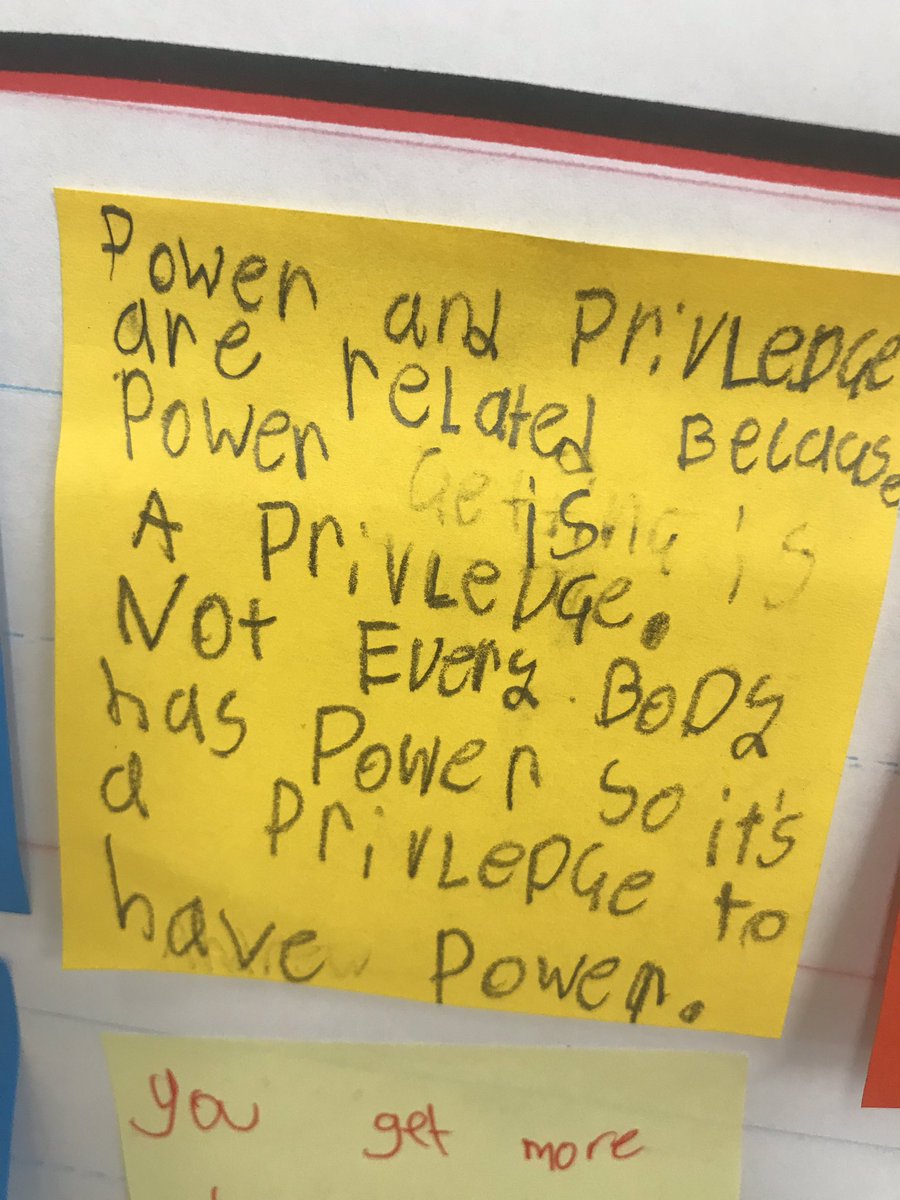 Power and PriVLeDGe
are related BeCause
Power is
A PriVLeDGe.
Not Every BoDy
has Power so it's
a PriVLeDGe to
have Power.
you get more